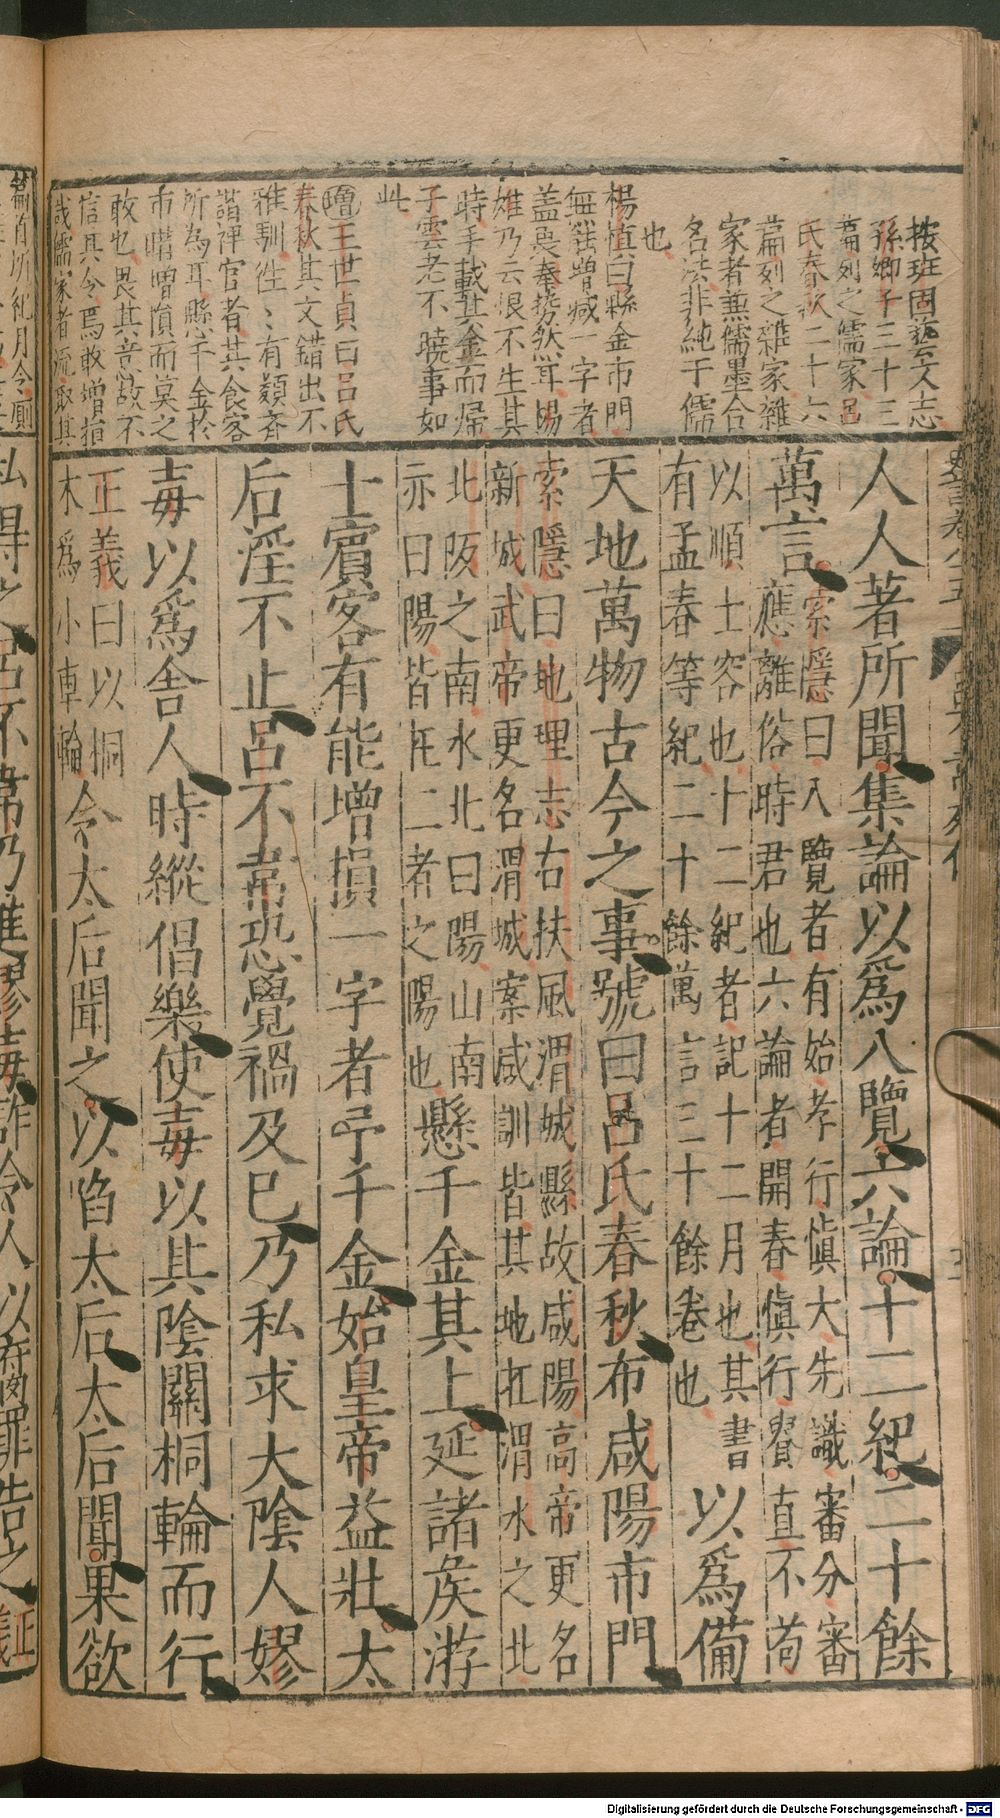 按班固藝文志
孫卿子三十三
篇列之儒家呂
氏春秋二十六
篇列之雜家雜
家者兼儒墨合
名法非純于儒
也
楊慎曰縣金市門
無能增减一字者
盖畏秦勢然耳揚
雄乃云恨不生其
時手載其金而歸
子雲老不曉事如
此
增王世貞曰呂氏
春秋其文錯出不
雅馴徃〻有類齊
諧稗官者其食客
所為耳縣千金於
市噆增損而莫之
敢也畏其意故不
信其令焉敢增損
哉儒家者流取其
人人著所聞集論以爲八覽六論十二紀二十餘
萬言索隱曰八覽者有始孝行愼大先識審分審
應離俗時君也六論者開春愼行貴直不苟
以順士容也十二紀者記十二月也其書
有孟春等紀二十餘萬言三十餘卷也以爲備
天地萬物古今之事號曰呂氏春秋布咸陽市門
索隱曰地理志右扶風渭城縣故咸陽高帝更名
新城武帝更名渭城案咸訓皆其地在渭水之北
北阪之南水北曰陽山南
亦曰陽皆在二者之陽也懸千金其上延諸矦游
士賓客有能增損一字者予千金始皇帝益壯太
后淫不止呂不韋恐覺禍及已乃私求大陰人嫪
毐以爲舍人時縱倡樂使毐以其陰關桐輪而行
正義曰以桐
木爲小車輪令太后聞之以陷太后太后聞果欲
私得之呂不韋乃進嫪毐詐令人以腐罪告之
Digitalisierung gefördert durch die Deutsche Forschungsgemeinschaft - DFG